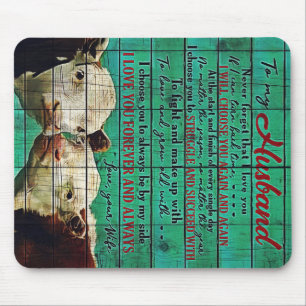 To my Husband
Never forget that I love you
If I can turn back time, ....
I WILL CHOOSE YOU AGAIN
At the start and finish of every single day
No matter the person, no matter the year
I choose you to STRUGGLE AND SUCCEED WITH
To fight and make up with
To love and grow old with....
I choose you to always be by my side
I LOVE YOU FOREVER AND ALWAYS
Love, your Wife